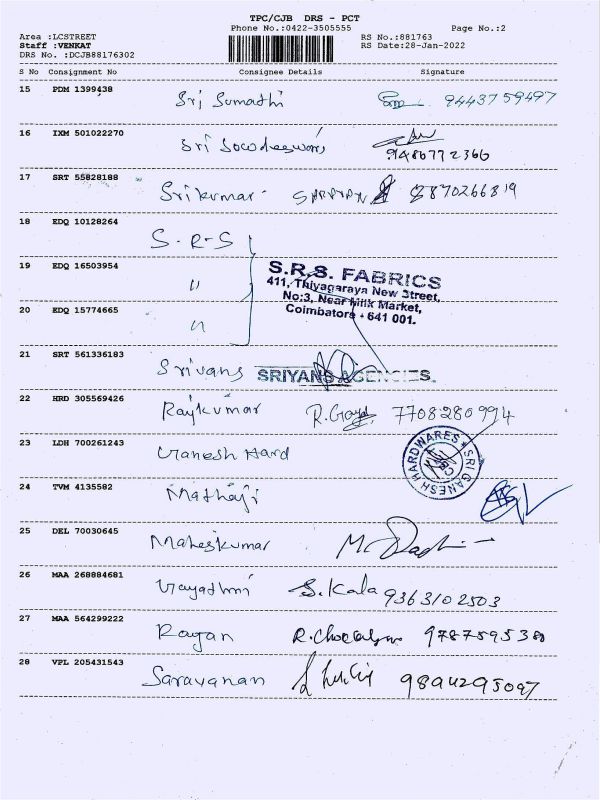 TPC/CJB DRS - PCT
Phone No.:0422-3505555 Page No.:2
Area :LCSTREET RS No.:881763
Staff :VENKAT RS Date:28-Jan-2022
DRS No. :DCJB88176302
S No Consignment No Consignee Details Signature
15 PDM 1399438 Sri Sumathi 9443759497
16 IXM 501022270 Sri Sowdeeswari 9486772366
17 SRT 55828188 Srikumar SARAVAN 8870266819
18 EDQ 10128264 S-R-S
19 EDQ 16503954 "
S.R.S. FABRICS
411, Thiyagaraya New Street,
No:3, Near Milk Market,
Coimbatore - 641 001.
20 EDQ 15774665 "
21 SRT 561336183 Srivans SRIYANS AGENCIES.
22 HRD 305569426 Rajkumar 7708280994
23 LDH 700261243 Ganesh Hard
SRI GANESH HARDWARES
24 TVM 4135582 Mathaji
25 DEL 70030645 Maheskumar
26 MAA 268884681 Gayathri S.Kala 9363102503
27 MAA 564299222 Rajan 978759538
28 VPL 205431543 Saravanan 9894295097